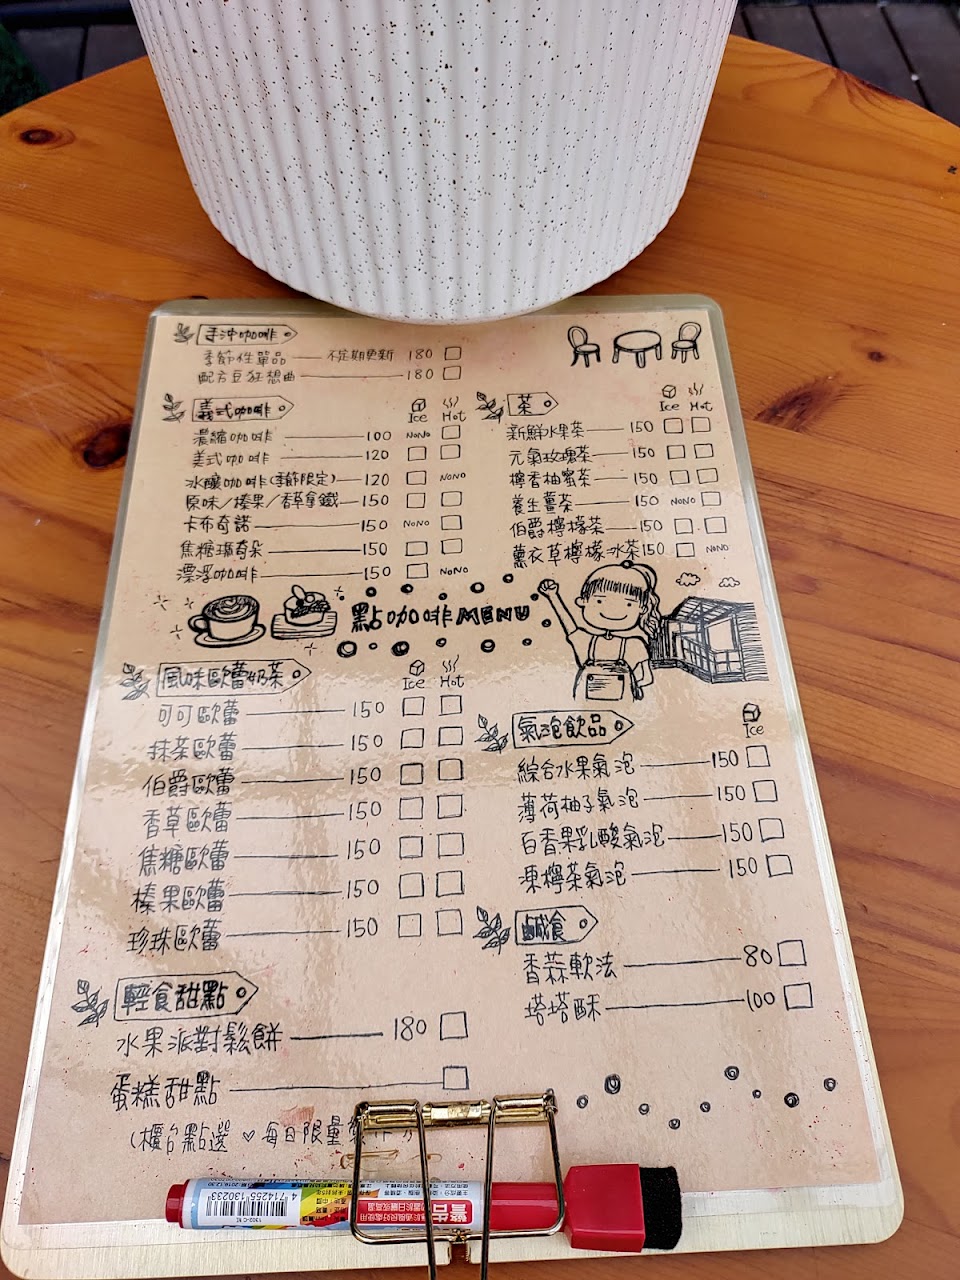 手沖咖啡
季節性單品 不定期更新 180
配方豆狂想曲 180
義式咖啡 Ice Hot
濃縮咖啡 100 NoNo
美式咖啡 120
冰釀咖啡(季節限定) 120 NoNo
原味/榛果/香草拿鐵 150
卡布奇諾 150 NoNo
焦糖瑪奇朵 150
漂浮咖啡 150 NoNo
茶 Ice Hot
新鮮水果茶 150
元氣玫瑰茶 150
檸香柚蜜茶 150
養生薑茶 150 NoNo
伯爵檸檬茶 150
薰衣草檸檬冰茶 150 NoNo
點咖啡 MENU
風味歐蕾奶茶 Ice Hot
可可歐蕾 150
抹茶歐蕾 150
伯爵歐蕾 150
香草歐蕾 150
焦糖歐蕾 150
榛果歐蕾 150
珍珠歐蕾 150
氣泡飲品 Ice
綜合水果氣泡 150
薄荷柚子氣泡 150
百香果乳酸氣泡 150
凍檸茶氣泡 150
鹹食
香蒜軟法 80
塔塔酥 100
輕食甜點
水果派對鬆餅 180
蛋糕甜點
(櫃台點選 ♡ 每日限量
4 714255 130233